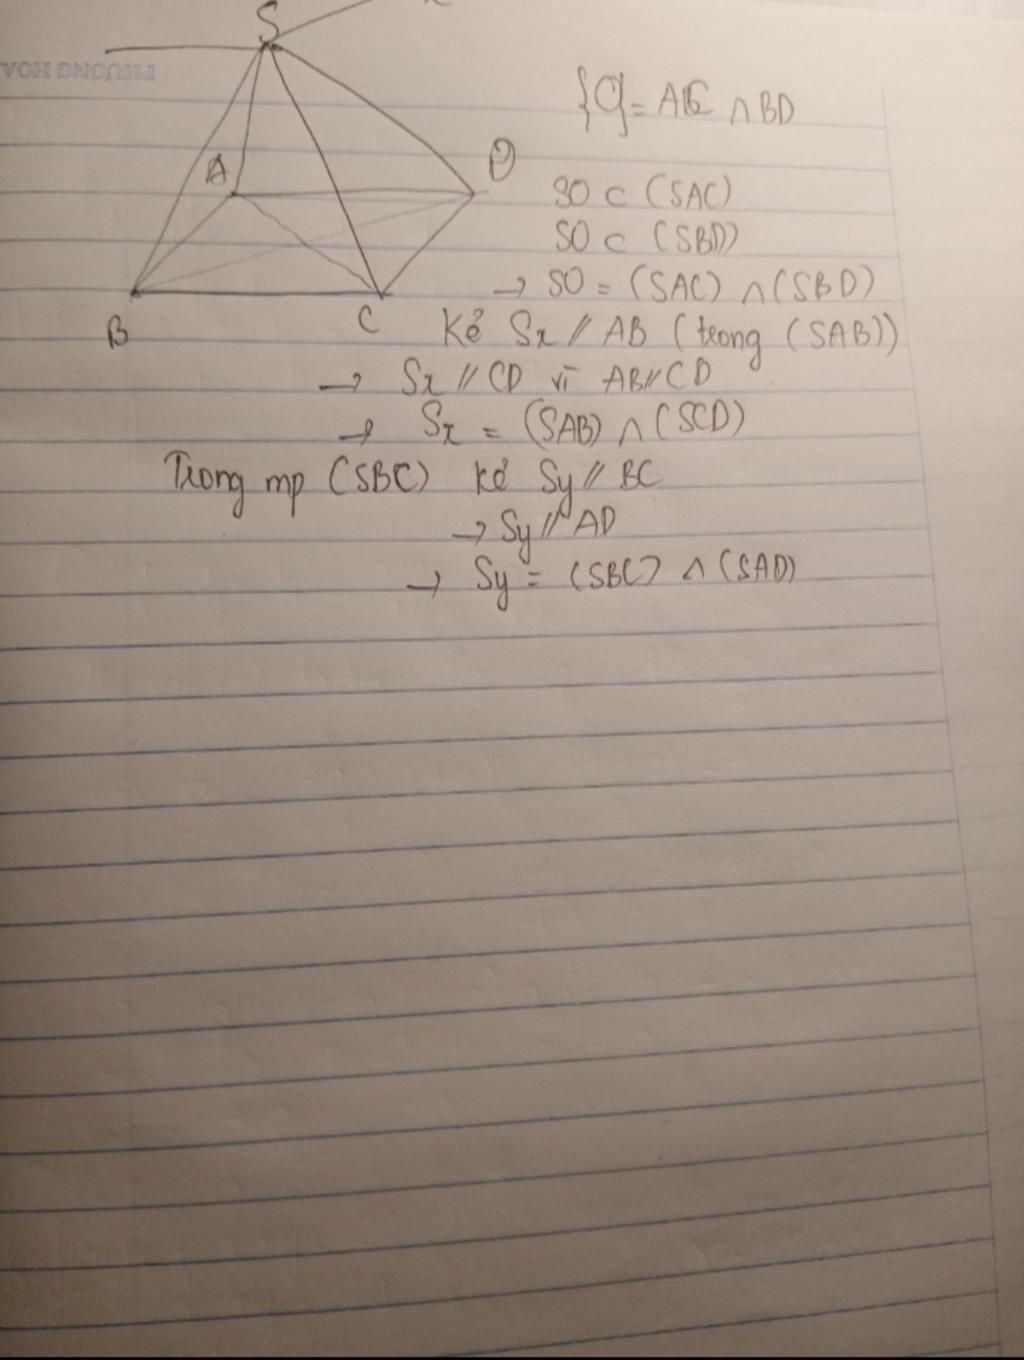 S
A
D
B
C
{O} = AC ∩ BD
SO ⊂ (SAC)
SO ⊂ (SBD)
→ SO = (SAC) ∩ (SBD)
Kẻ Sx // AB (trong (SAB))
→ Sx // CD vì AB // CD
→ Sx = (SAB) ∩ (SCD)
Trong mp (SBC) kẻ Sy // BC
→ Sy // AD
→ Sy = (SBC) ∩ (SAD)